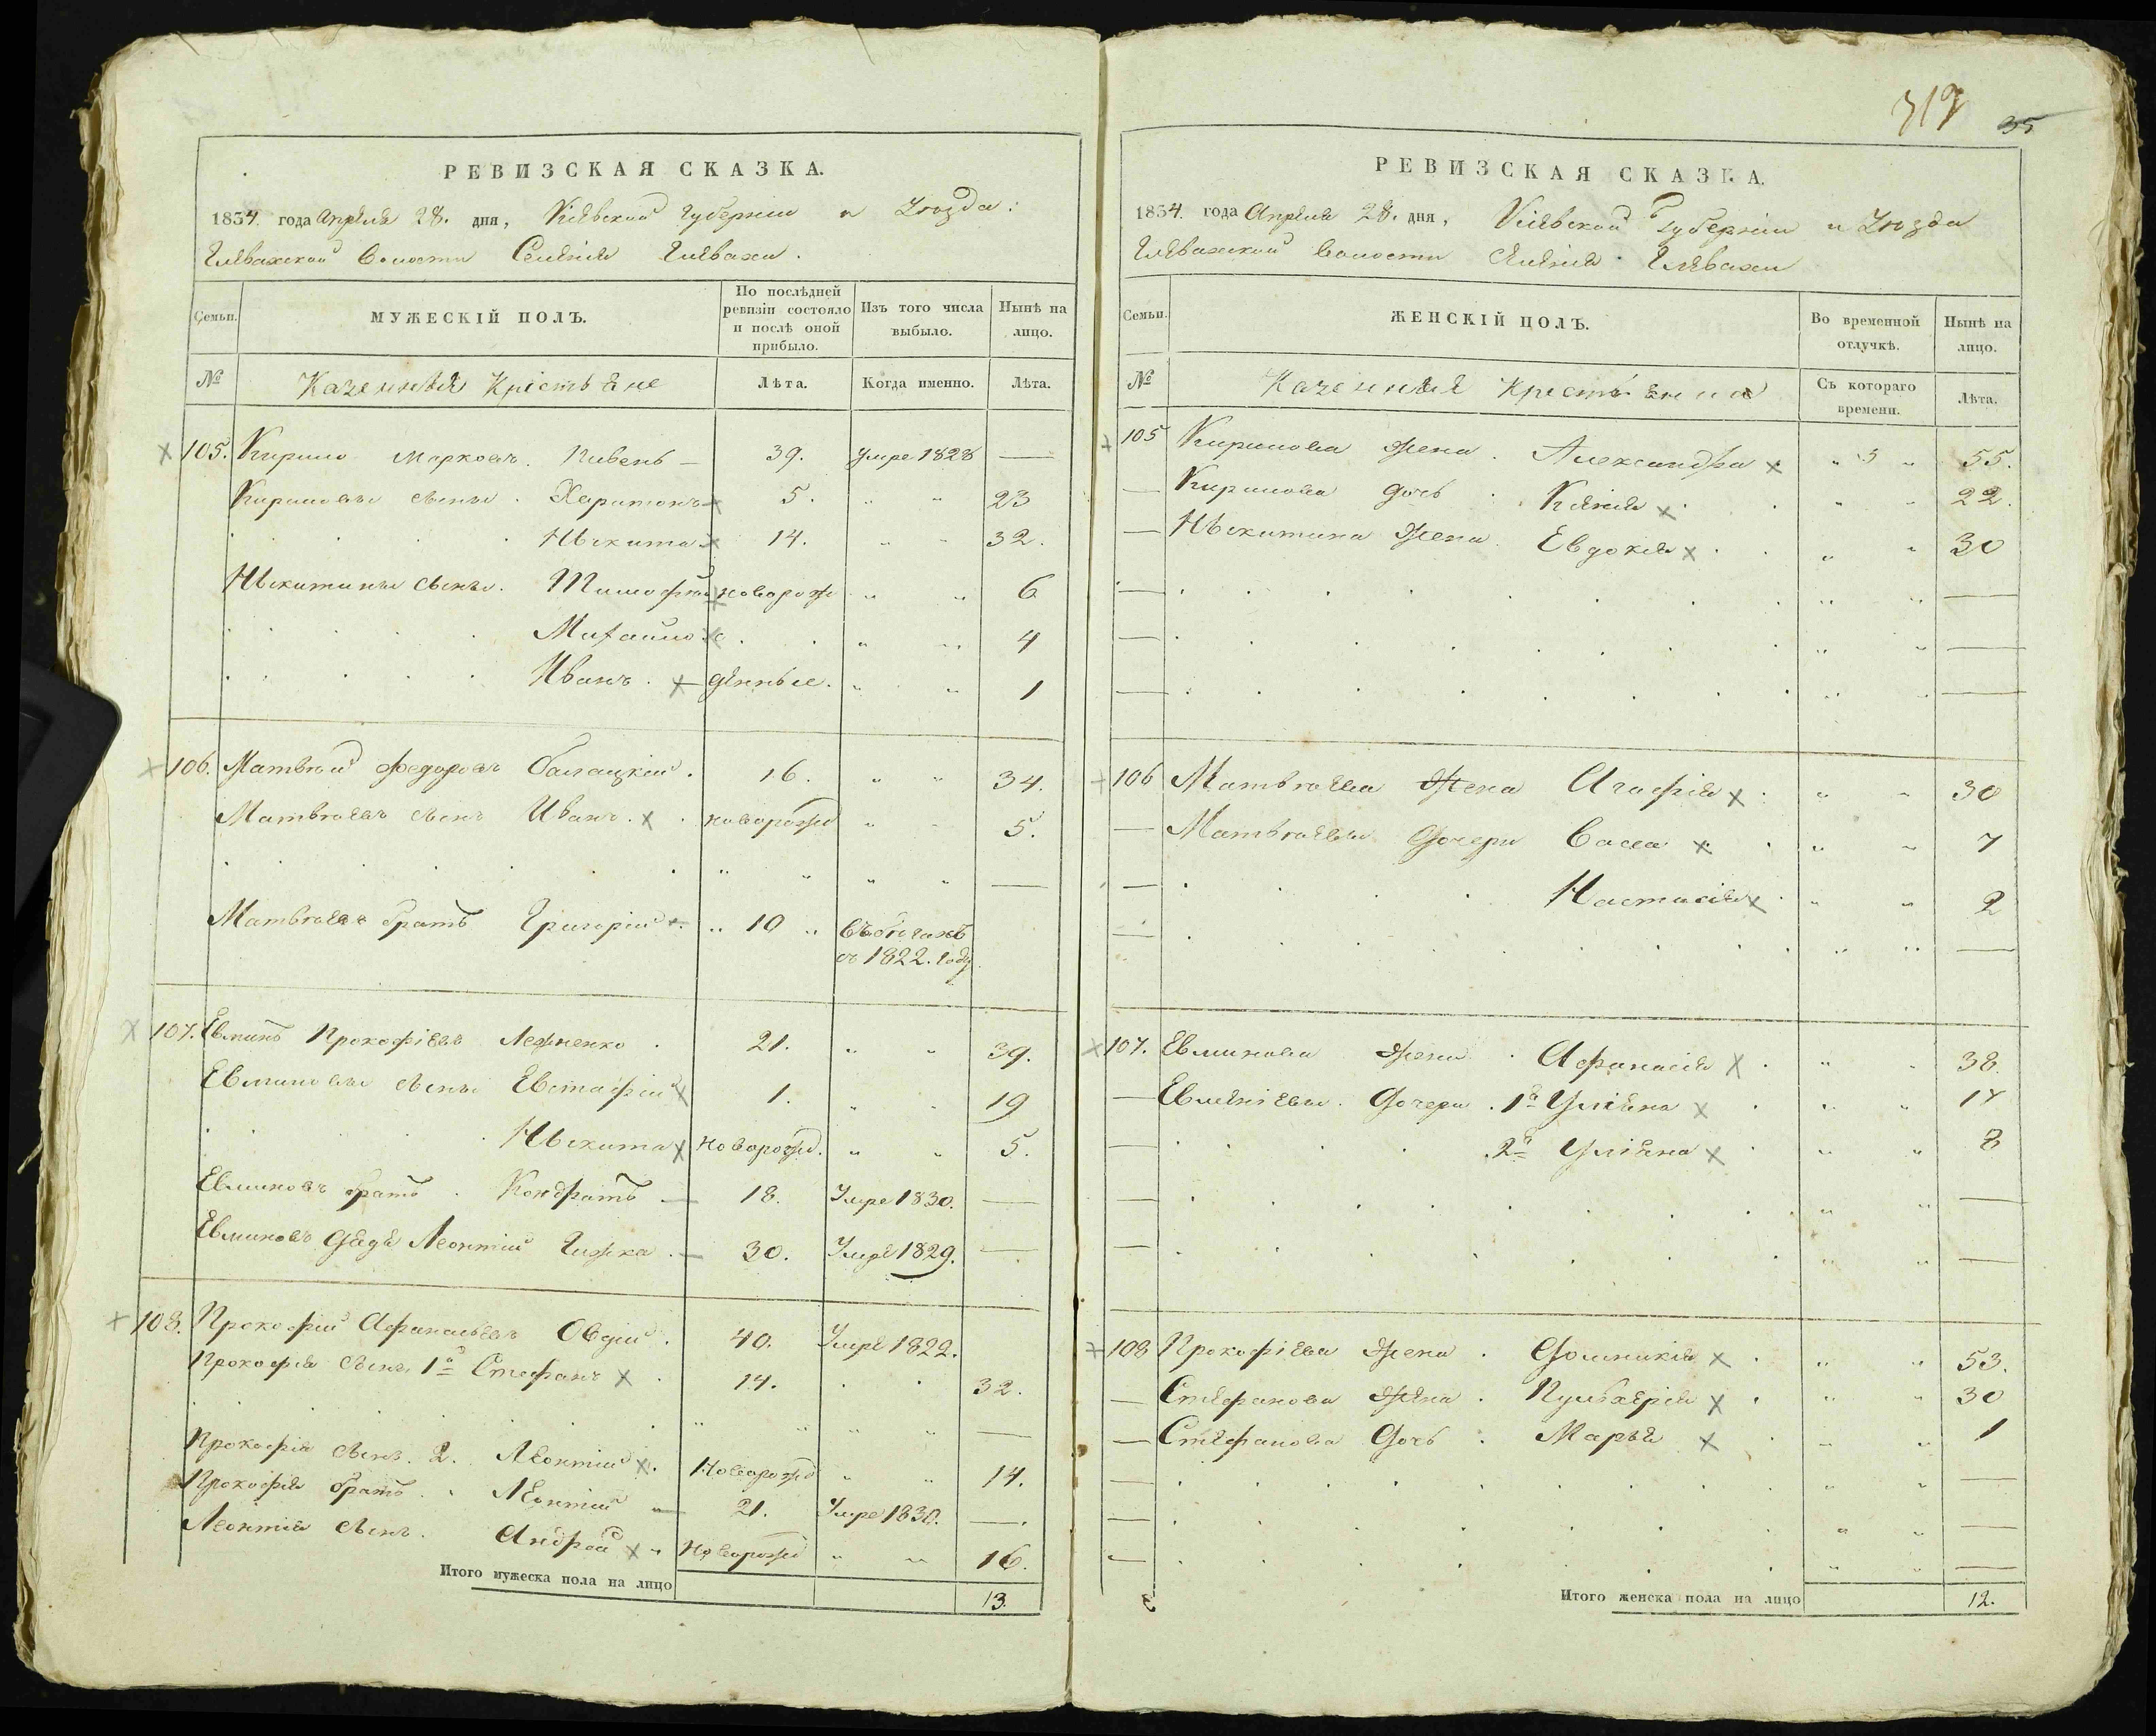 РЕВИЗСКАЯ СКАЗКА.
1834. года Апреля 28. дня, Киевской Губернии и Уѣзда:
Глевахской Волости Селения Глевахи.
Семьи. МУЖЕСКІЙ ПОЛЪ. По послѣдней ревизіи состояло и послѣ оной прибыло. Изъ того числа выбыло. Нынѣ на лицо.
№ Казенные Крестьяне Лѣта. Когда именно. Лѣта.
105. Кирило Марковъ Пивень 39. умре 1828 —
Кириловы сыны. Харитонъ 5. 23
Ныкита 14. 32.
Ныкитины сыны. Тимофей новорож 6
Михайло 4
Иванъ. денные. 1
106. Матвѣй Федоровъ Балацкій. 16. 34.
Матвѣевъ сынъ Иванъ. новорожд 5.
Матвѣевъ братъ Григорій 10 въ бѣгахъ
съ 1822. году
107. Евминъ Прокофіевъ 21. 39.
Евминовы сыны Евстафій 1. 19
Ныкита новорожд. 5.
Евминовъ братъ. Кондратъ — 18. Умре 1830. —
Евминовъ дядя Леонтій — 30. Умре 1829. —
108. Прокофій Афанасьевъ Овдій. 40. Умре 1822.
Прокофія сынъ 1й Стефанъ 14. 32.
Прокофія сынъ. 2. Леонтій Новорожд 14.
Прокофія братъ. Леонтій — 21. Умре 1830. —
Леонтія сынъ. Андрей Новорожд 16.
Итого мужеска пола на лицо 13.
319 35
РЕВИЗСКАЯ СКАЗКА.
1834. года Апреля 28. дня, Киевской Губерніи и Уѣзда
Глевахской Волости Селения Глевахи
Семьи. ЖЕНСКІЙ ПОЛЪ. Во временной отлучкѣ. Нынѣ на лицо.
№ Казенные Съ котораго времени. Лѣта.
105 Кирилова жена. Александра 55.
— Кирилова дочь Ксенія 22.
— Ныкитина жена Евдокія 30
106 Матвѣева жена Агафія 30
— Матвѣевы дочери Васса 7
— Настасія 2
107. Евминова жена. Афанасія 38.
— дочери. 1я Уліяна
— 2я Уліяна 8
108 Прокофіева жена. Домникія 53.
— Стефанова жена. Пульхерія 30
— Стефанова дочь. Марья 1
Итого женска пола на лицо 12.